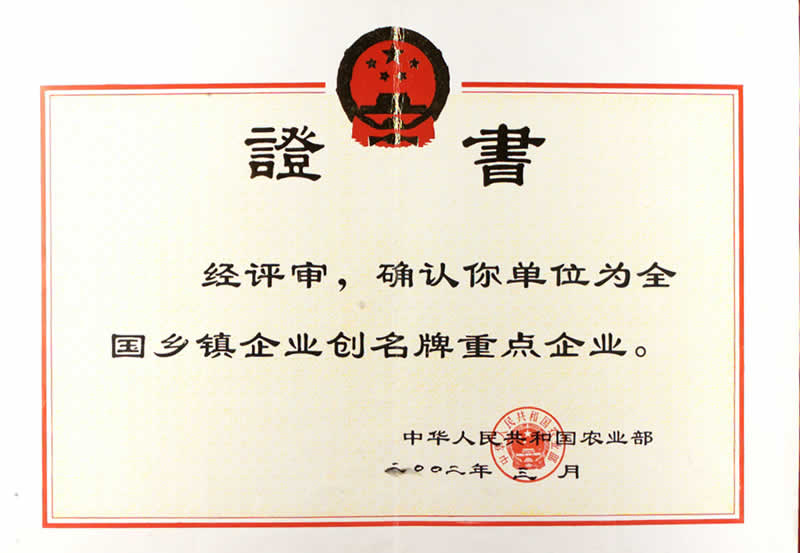 證書
经评审，确认你单位为全
国乡镇企业创名牌重点企业。
中华人民共和国农业部
二〇〇二年 三 月
中华人民共和国农业部